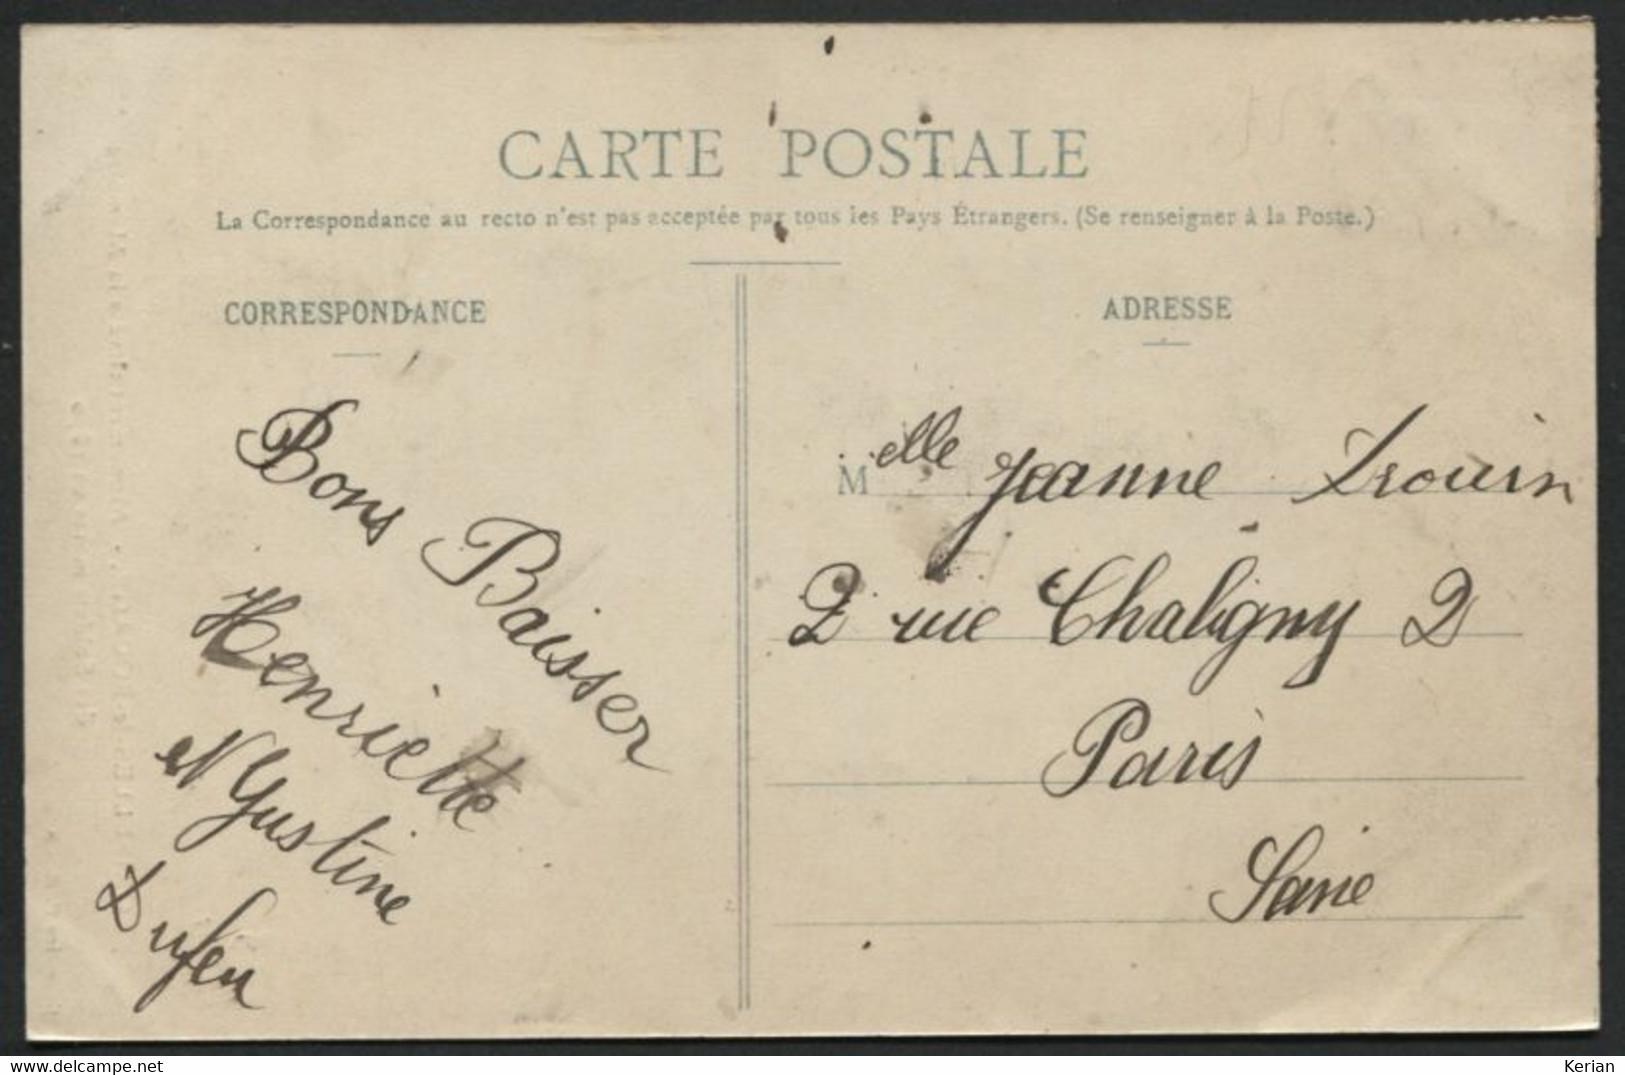 CARTE POSTALE
La Correspondance au recto n'est pas acceptée par tous les Pays Étrangers. (Se renseigner à la Poste.)
CORRESPONDANCE
Bons Baisser
Henriette
et Gustine
Dufeu
ADRESSE
Melle Jeanne Drouin
2 rue Chaligny 2
Paris
Seine
Kerian